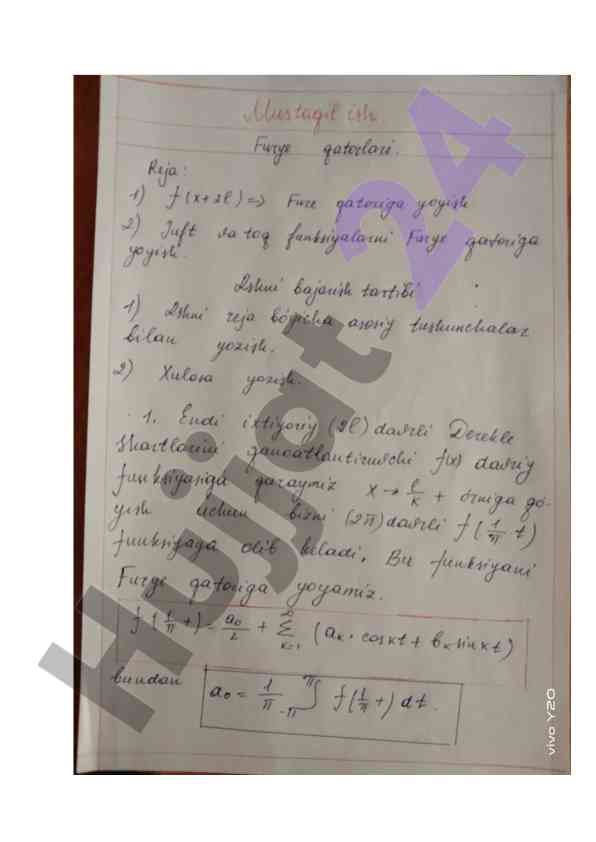 Mustaqil ish
Furye qatorlari.
Reja:
1) f(x+2l) => Fure qatoriga yoyish
2) Juft va toq funksiyalarni Furye qatoriga
yoyish.
Ishni bajarish tartibi
1) Ishni reja bóyicha asosiy tushunchalar
bilan yozish.
2) Xulosa yozish.
1. Endi ixtiyoriy (2l) davrli Derekle
shartlarini qanoatlantiruvchi f(x) davriy
funksiyasiga qaraymiz x → l/k t órniga qó-
yish uchun bizni (2π) davrli f(1/π t)
funksiyaga olib keladi. Bu funksiyani
Furye qatoriga yoyamiz.
f(1/π t) = a₀/2 + ∞ Σ k=1 (aₖ · cos kt + bₖ sin kt)
bundan a₀ = 1/π -π ∫ π f(1/π t) dt.
Hujjat 24
vivo Y20